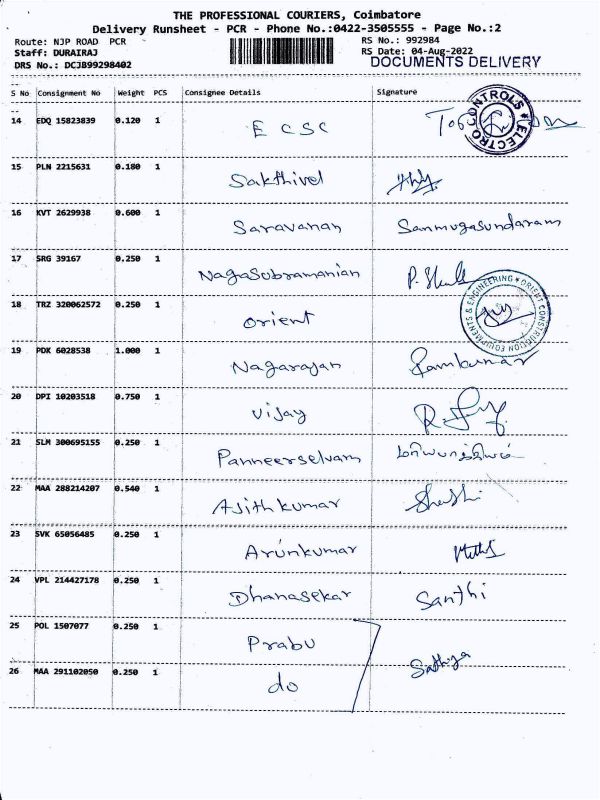 THE PROFESSIONAL COURIERS, Coimbatore
Delivery Runsheet - PCR - Phone No.:0422-3505555 - Page No.:2
Route: NJP ROAD PCR
RS No.: 992984
Staff: DURAIRAJ
RS Date: 04-Aug-2022
DRS No.: DCJB99298402
DOCUMENTS DELIVERY
S No Consignment No Weight PCS Consignee Details Signature
14 EDQ 15823839 0.120 1 E C S C
ELECTRO CONTROLS
15 PLN 2215631 0.180 1 Sakthivel
16 KVT 2629938 0.600 1 Saravanan Sanmugasundaram
17 SRG 39167 0.250 1 NagaSubramanian
18 TRZ 320062572 0.250 1 Orient
ORIENT CONSTRUCTION EQUIPMENTS & ENGINEERING
19 PDK 6028538 1.000 1 Nagarajan Ramkumar
20 DPI 10203518 0.750 1 Vijay
21 SLM 300695155 0.250 1 Panneerselvam
22 MAA 288214207 0.540 1 Ajithkumar Shashi
23 SVK 65056485 0.250 1 Arunkumar
24 VPL 214427178 0.250 1 Dhanasekar Santhi
25 POL 1507077 0.250 1 Prabu
Sathiya
26 MAA 291102050 0.250 1 do